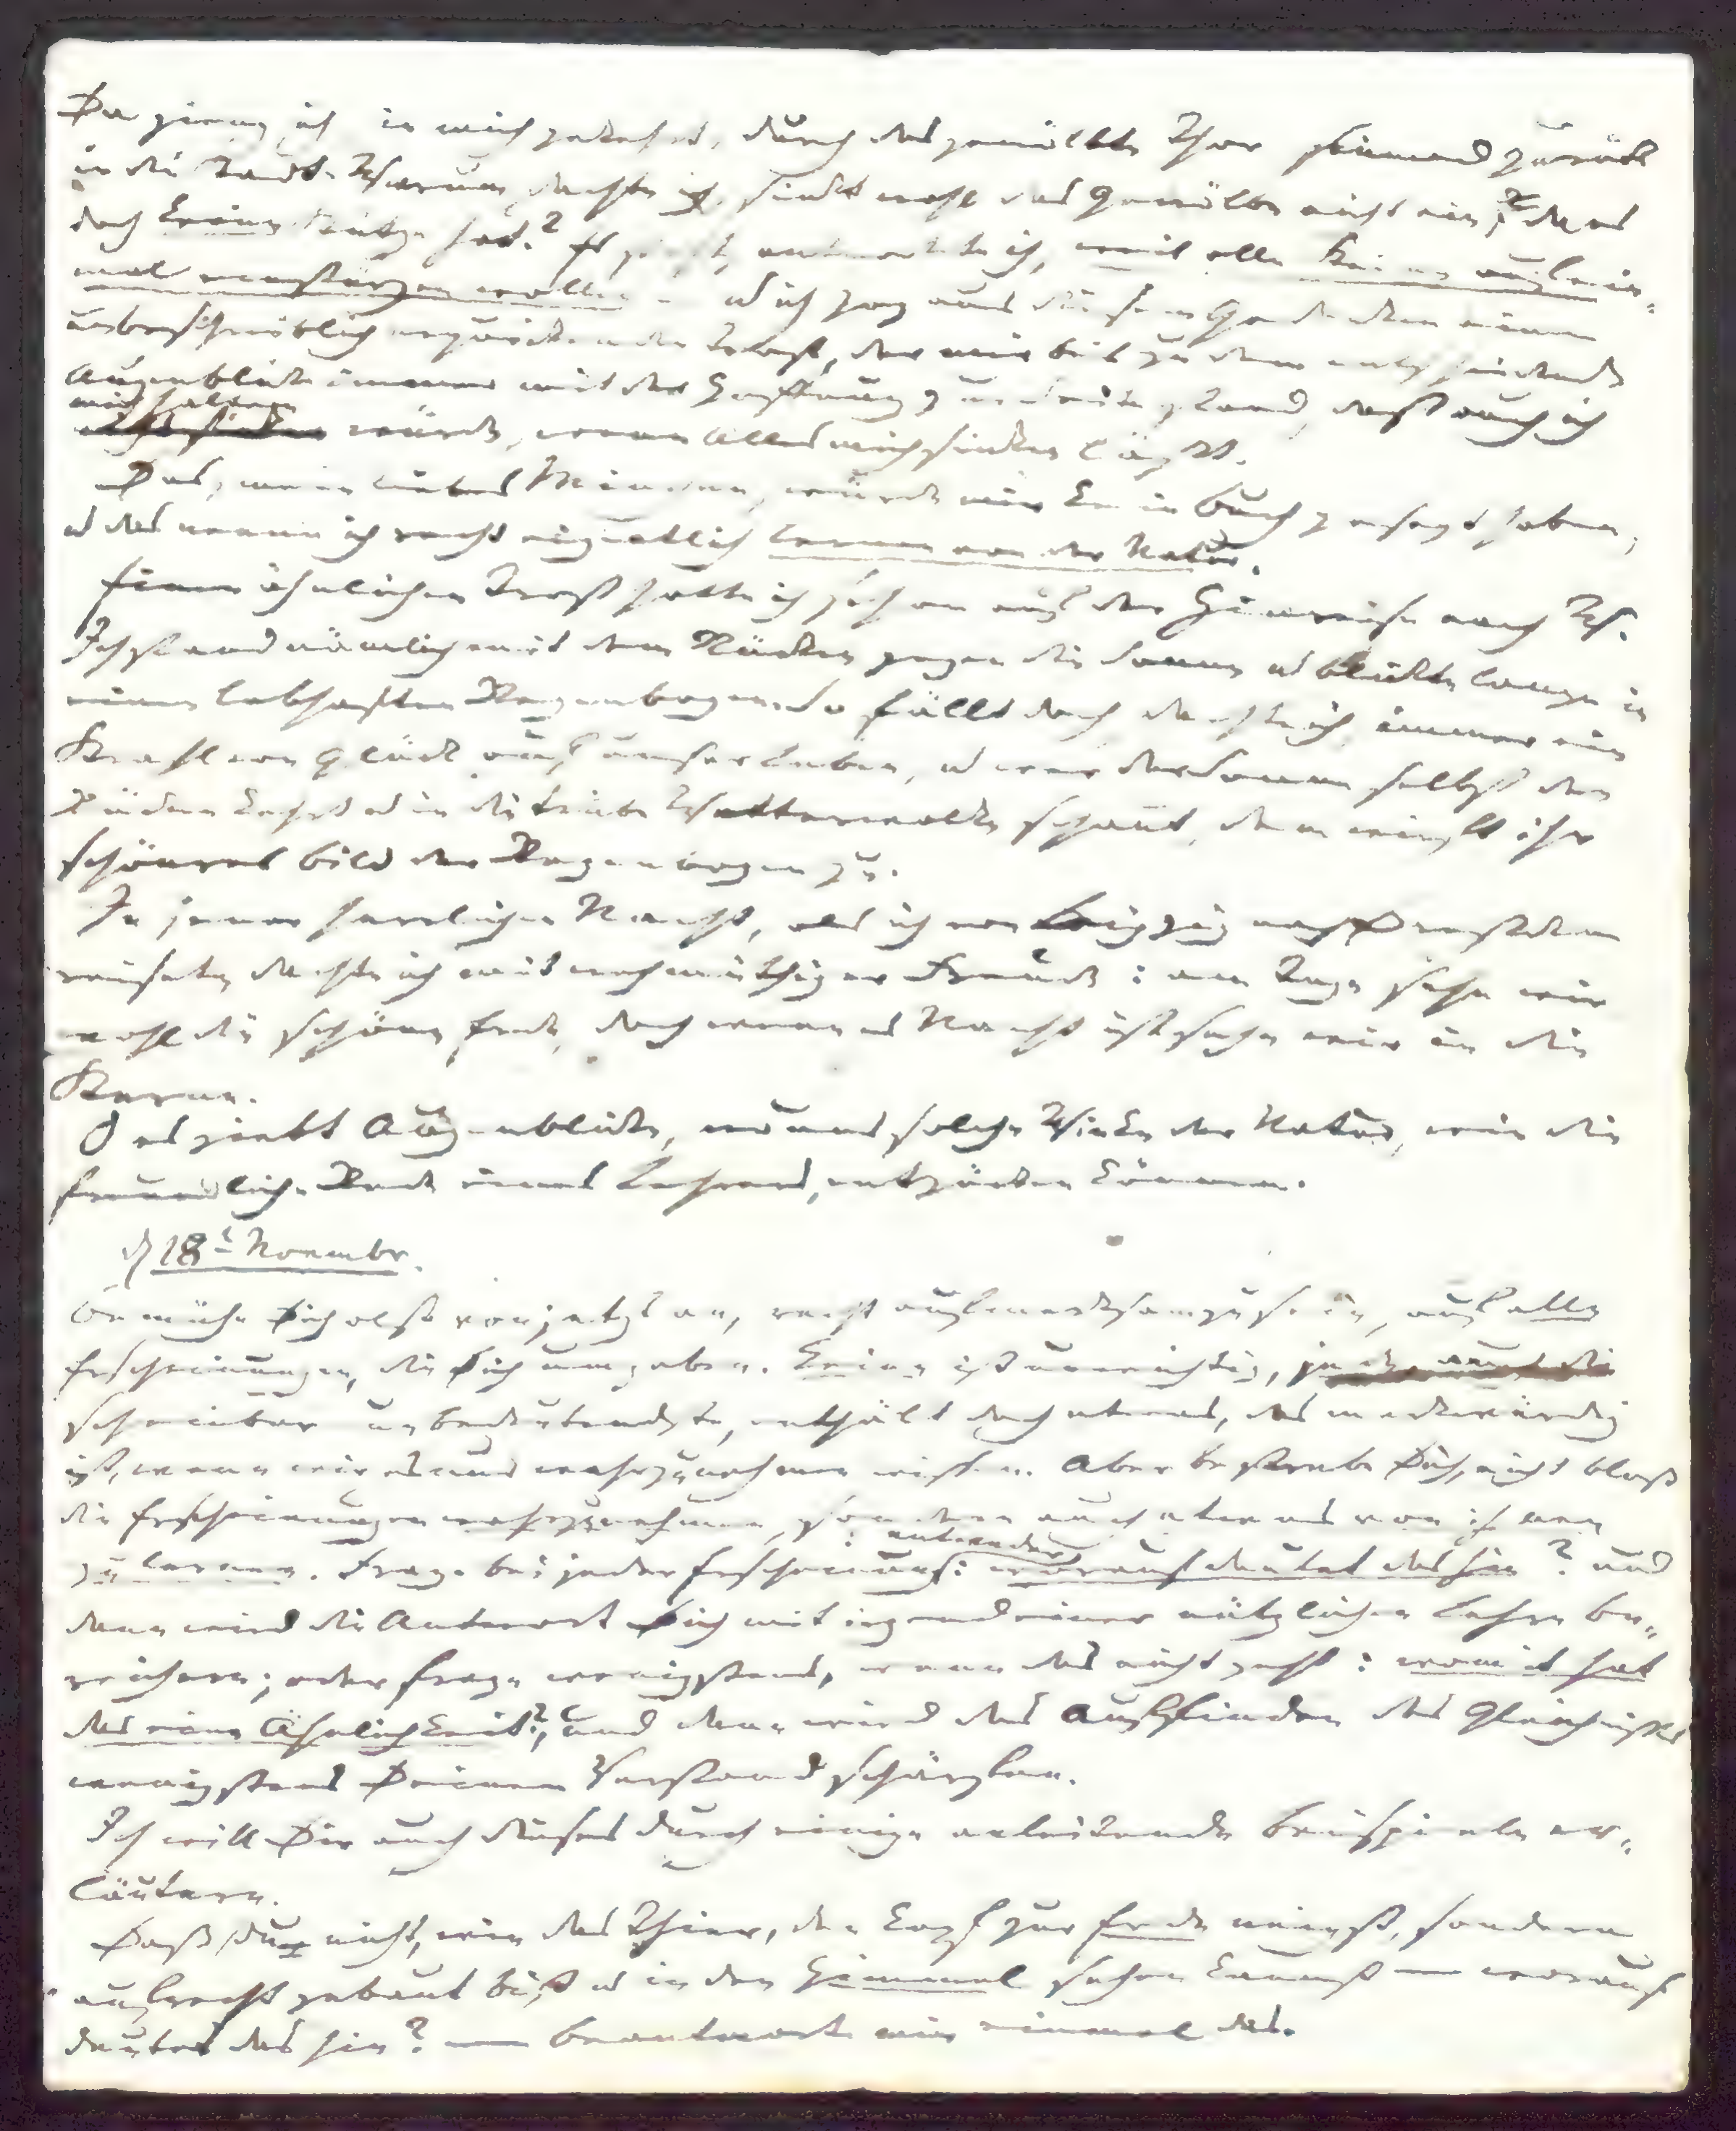 Da gieng ich in mich gekehrt, durch das gewölbte Thor sinnend zurück
in die Stadt. Warum, dachte ich, sinkt wohl das Gewölbe nicht ein, da es
doch keine Stütze hat? Es steht, antwortete ich, weil alle Steine auf ein-
mal einstürzen wollen — u ich zog aus diesem Gedanken einen
unbeschreiblich erquickenden Trost, der mir bis zu dem entscheidenden
Augenblicke immer mit der Hoffnung zur Seite stand, daß auch ich
mich halten würde, wenn Alles mich sinken läßt.
Das, mein liebes Minchen, würde mir kein Buch gesagt haben,
u das nenn ich recht eigentlich lernen von der Natur.
Einen ähnlichen Trost hatte ich schon auf der Hinreise nach W.
Ich stand nämlich mit dem Rücken gegen die Sonne u blickte lange in
einen lebhaften Regenbogen. So fällt doch, dachte ich, immer ein
Strahl von Glück auf unser Leben, u wer der Sonne selbst den
Rücken kehrt u in die trübe Wetterwolke schaut, dem wirft ihr
schönres Bild der Regenbogen zu.
In jener herrlichen Nacht, als ich von Leipzig nach Dresden
reisete, dachte ich mit wehmüthiger Freude: am Tage sehn wir
wohl die schöne Erde, doch wenn es Nacht ist sehn wir in die
Sterne.
O es giebt Augenblicke, wo uns solche Winke der Natur, wie die
freundliche Rede eines Lehrers, entzücken können.
d 18t Novembr.
Bemühe Dich also von jetzt an, recht aufmerksam zu sein, auf alle
Erscheinungen, die Dich umgeben. Keine ist unwichtig, jede, auch die
scheinbar unbedeutendste, enthält doch etwas, das merkwürdig
ist, wenn wir es nur wahrzunehmen wissen. Aber bestrebe Dich, nicht bloß
die Erscheinungen wahrzunehmen, sondern auch etwas von ihnen
zu lernen. Frage bei jeder Erscheinung: entweder: worauf deutet das hin? und
dann wird die Antwort Dich mit irgend einer nützlichen Lehre be-
reichern; oder frage wenigstens, wenn das nicht geht: womit hat
das eine Ähnlichkeit? und dann wird das Auffinden des Gleichnisses
wenigstens Deinen Verstand schärfen.
Ich will Dir auch dieses durch einige anleitende Beispiele er-
läutern.
Daß du nicht, wie das Thier, den Kopf zur Erde neigst, sondern
aufrecht gebaut bist u in den Himmel sehen kannst — worauf
deutet das hin? — beantworte mir einmal das.